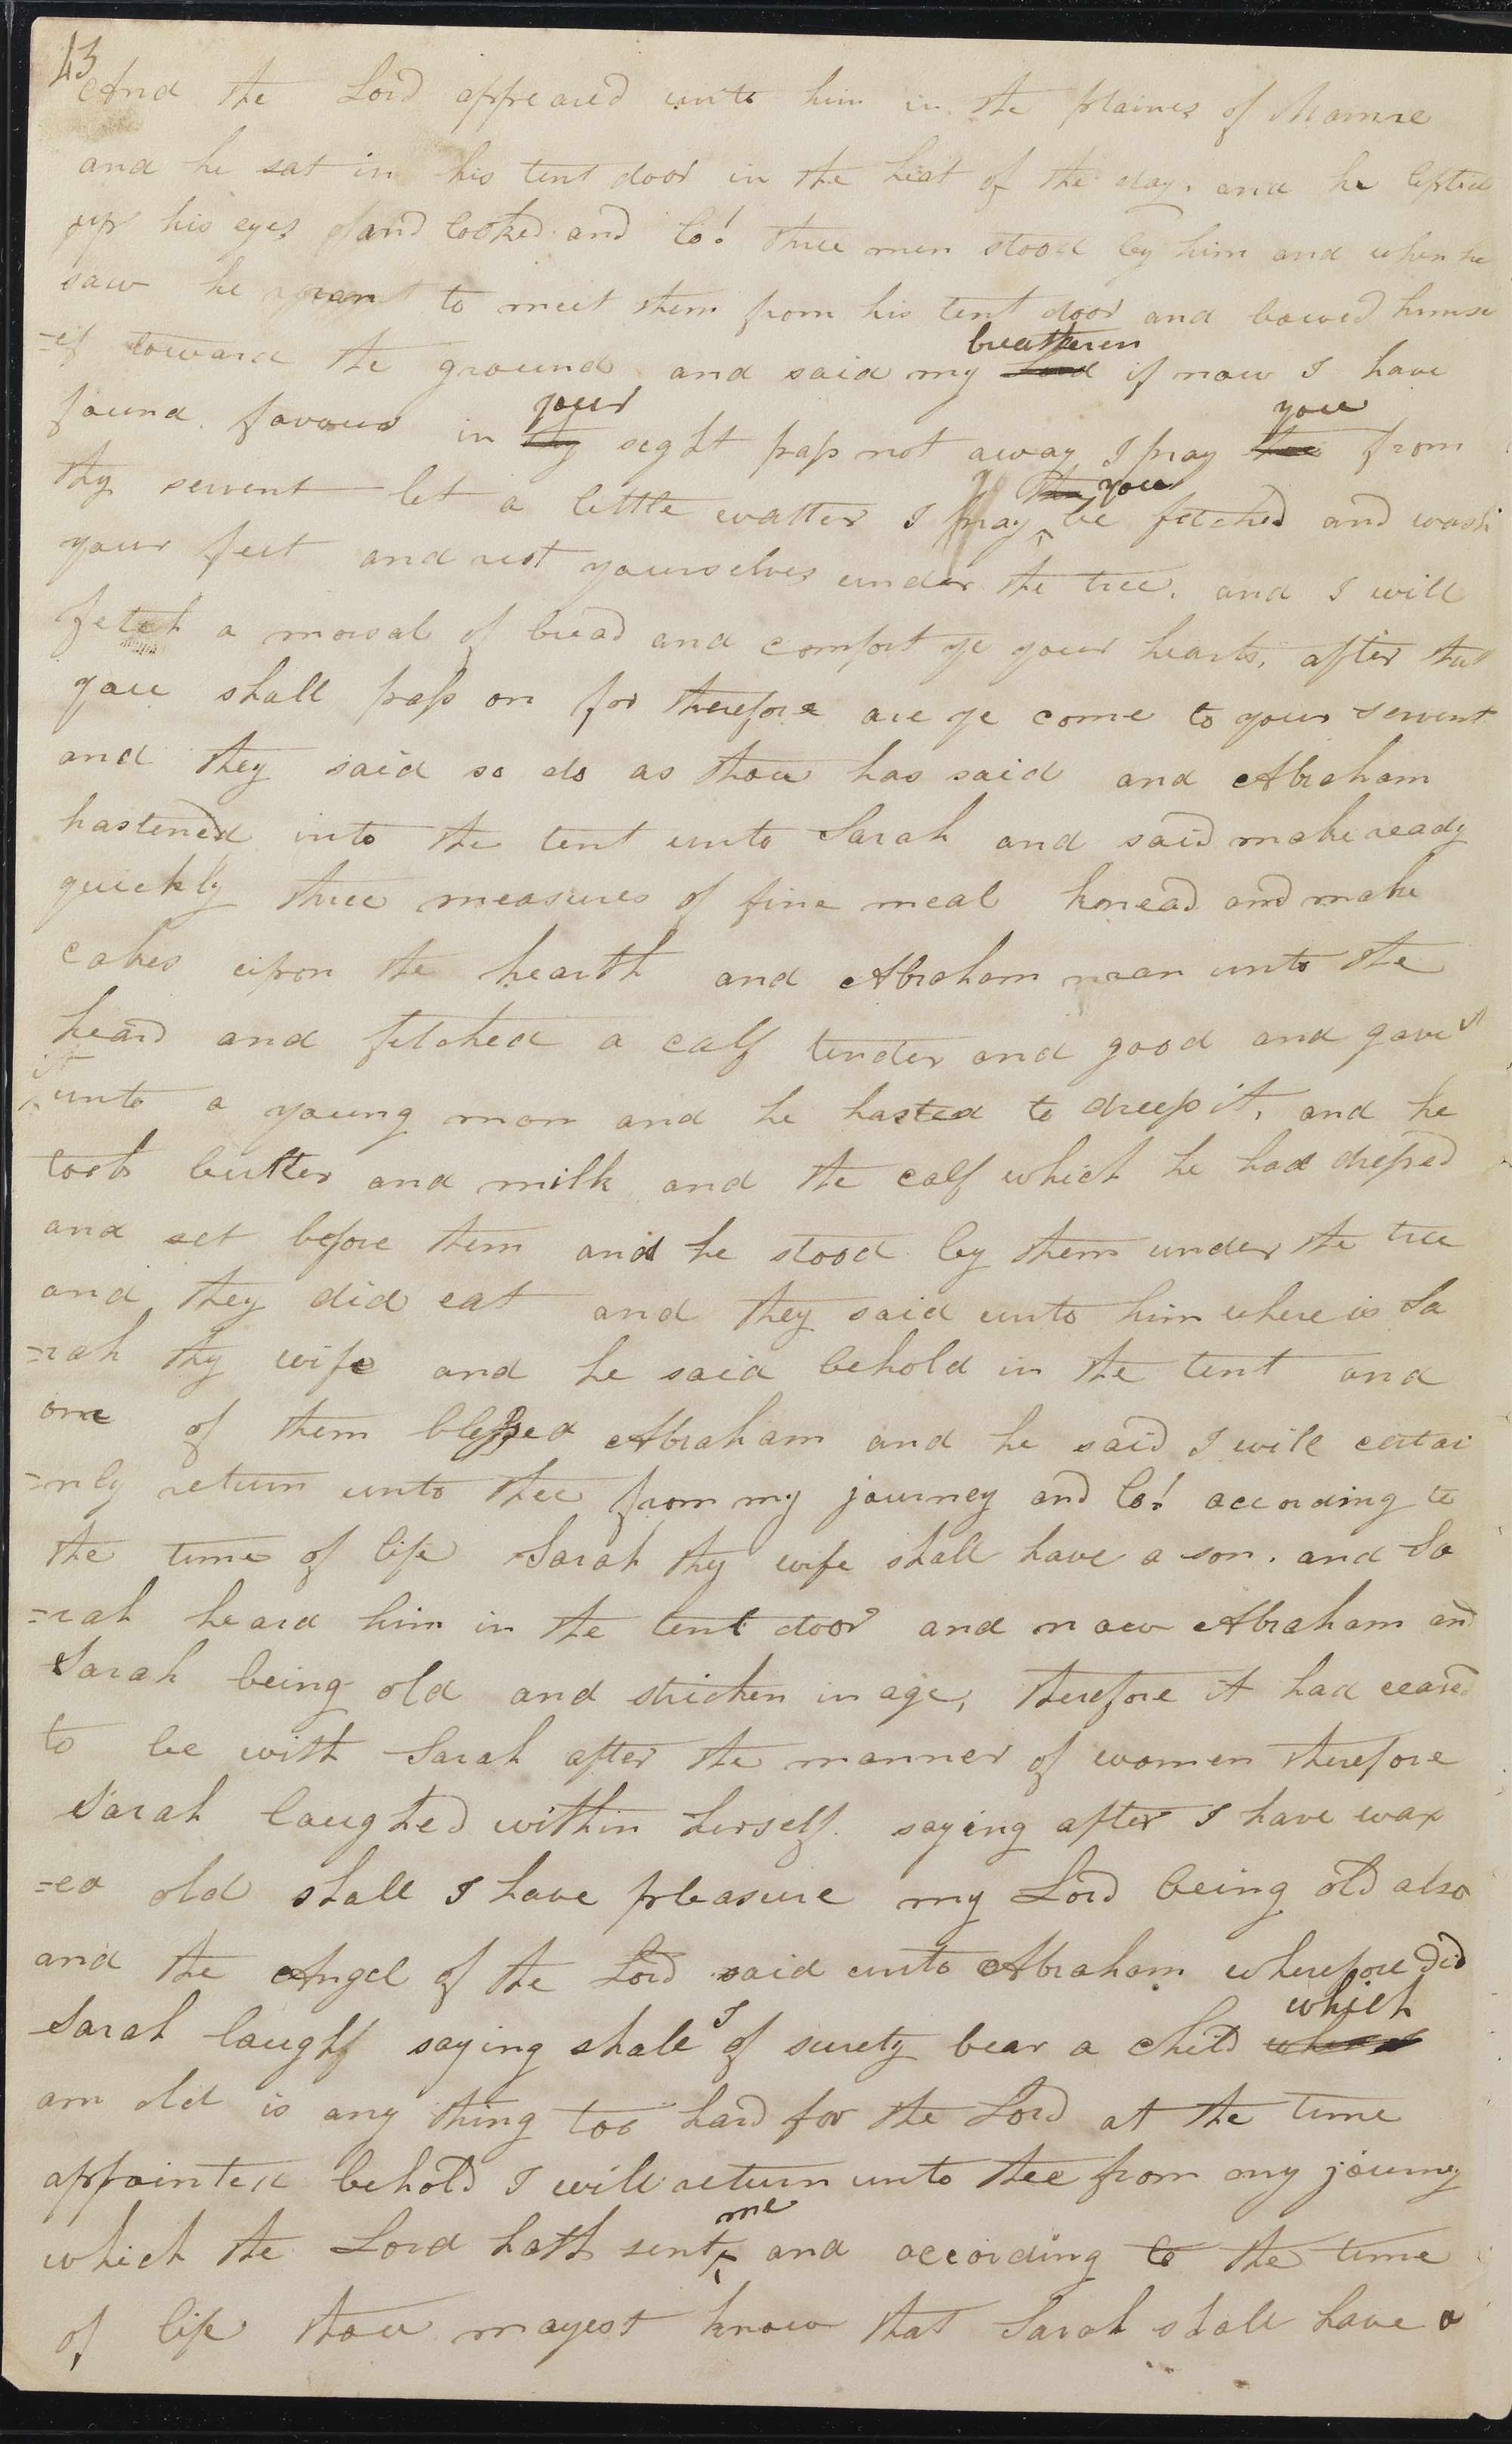 43
And the Lord appeared unto him in the plaines of Mamre
and he sat in his tent door in the heat of the day, and he lifted
up his eyes and looked and lo! three men stood by him and when he
saw he ran to meet them from his tent door and bowed himse
=lf toward the ground and said my breatheren if now I have
found favour in your seght pass not away I pray you from
thy servent let a little watter I pray you be fetched and wash
your feet and rest yourselves under the tree. and I will
fetch a morsal of bread and comfort ye your hearts, after that
you shall pass on for therefore are ye come to your servent
and they said so do as thou has said and Abraham
hastened into the tent unto Sarah and said make ready
quickly three measures of fine meal knead and make
cakes upon the hearth and Abraham ran unto the
heard and fetched a calf tender and good and gave it
unto a young man and he hasted to dress it, and he
took butter and milk and the calf which he had dressed
and set before them and he stood by them under the tree
and they did eat and they said unto him where is Sa
=rah thy wife and he said behold in the tent and
one of them blessed Abraham and he said I will certai
=nly return unto thee from my journey and lo! according to
the time of life Sarah thy wife shall have a son. and Sa
=rah heard him in the tent door and now Abraham and
Sarah being old and stricken in age, therefore it had ceased
to be with Sarah after the manner of women therefore
Sarah laughed within herself. saying after I have wax
=ed old shall I have pleasure my Lord being old also
and the Angel of the Lord said unto Abraham wherefore did
Sarah laugh saying shall I of surety bear a child which
am old is any thing too hard for the Lord at the time
appointed behold I will return unto thee from my journy
which the Lord hath sent me and according to the time
of life thou mayest know that Sarah shall have a